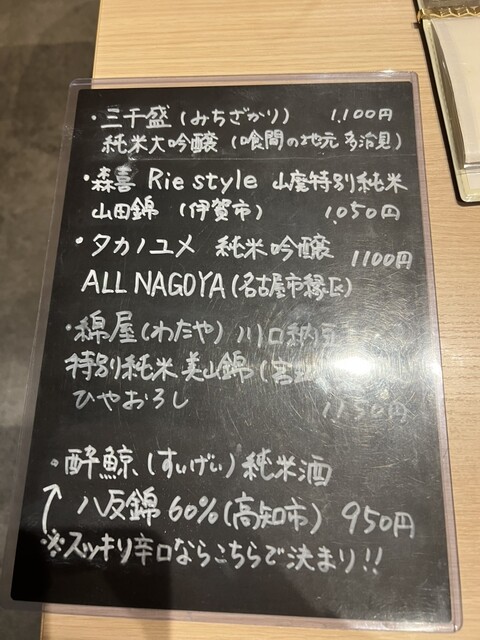 ・三千盛(みちざかり) 1,100円
純米大吟醸(喰間の地元 多治見)
・森喜 Rie style 山廃特別純米
山田錦 (伊賀市) 1,050円
・タカノユメ 純米吟醸 1100円
ALL NAGOYA(名古屋市緑区)
・綿屋(わたや) 川口納豆
特別純米 美山錦(宮
ひやおろし 1150円
・酔鯨(すいげい)純米酒
↑ 八反錦 60%(高知市) 950円
※スッキリ辛口ならこちらで決まり!!